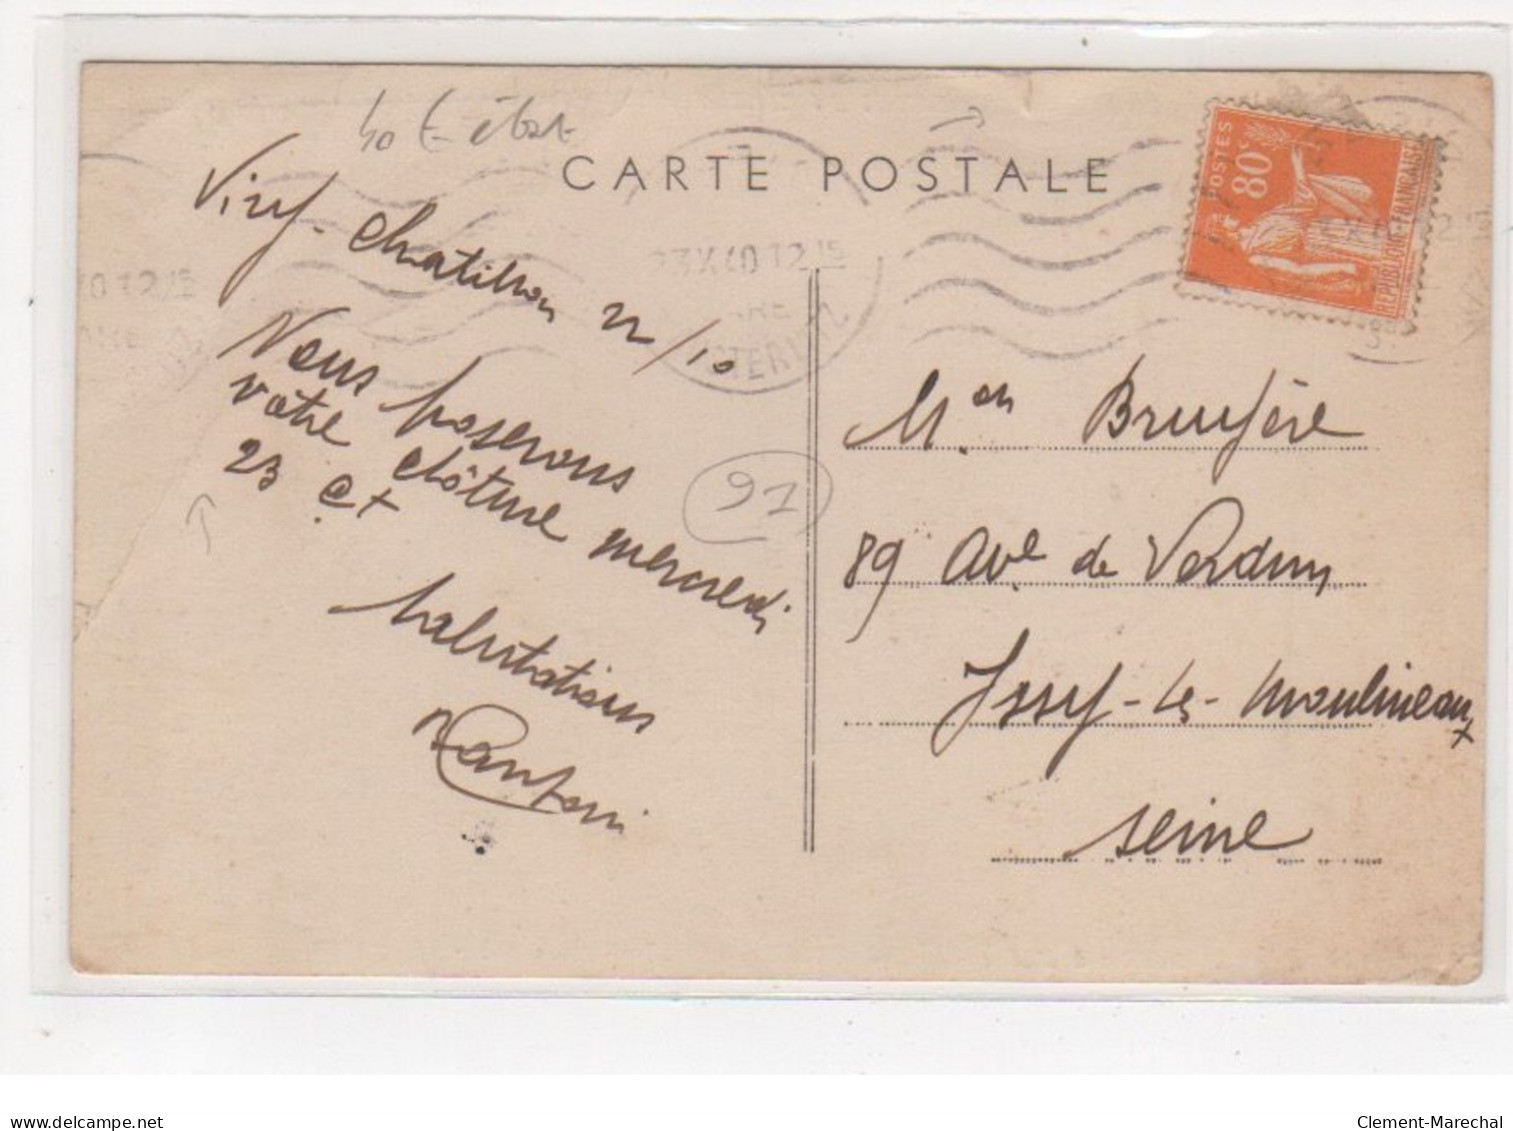 40 € état
CARTE POSTALE
Viry-Chatillon 22/10
23 X 40 12 15
POSTES
80c
REPUBLIQUE-FRANÇAISE
Nous poserons
votre clôture mercredi
23 ct
91
Salutations
Mon Bruyère
89 Ave de Verdun
Issy-les-Moulineaux
Seine
www.delcampe.net
Clement-Marechal